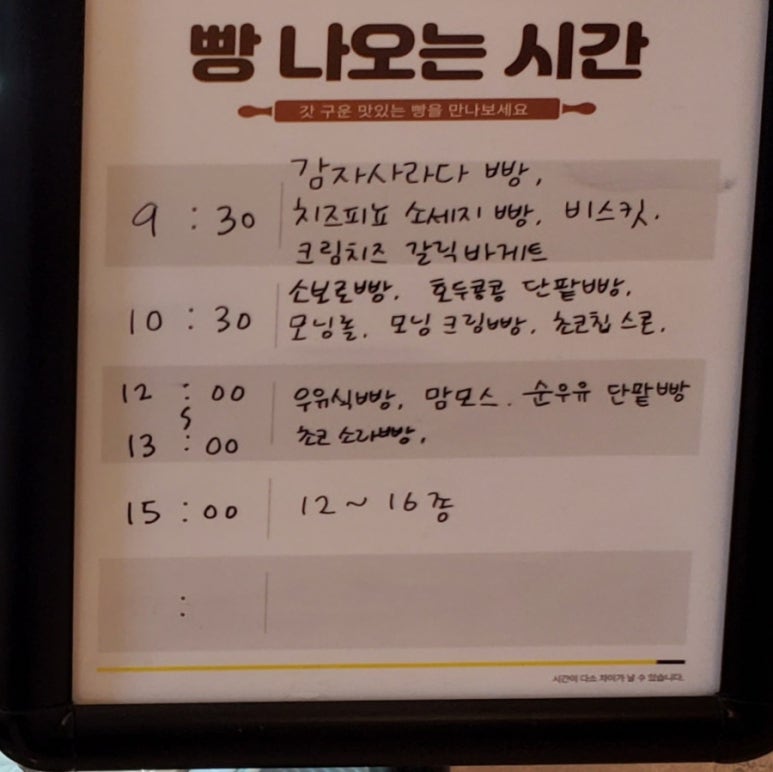 빵 나오는 시간
갓 구운 맛있는 빵을 만나보세요
9 : 30 감자사라다 빵,
치즈피뇨 소세지 빵, 비스킷.
크림치즈 갈릭바게트
10 : 30 소보로빵, 호두콩콩 단팥빵,
모닝롤, 모닝 크림빵, 초코칩 스콘,
12 : 00 우유식빵, 맘모스. 순우유 단팥빵
~
13 : 00 초코 소라빵,
15 : 00 12 ~ 16 종
:
시간이 다소 차이가 날 수 있습니다.